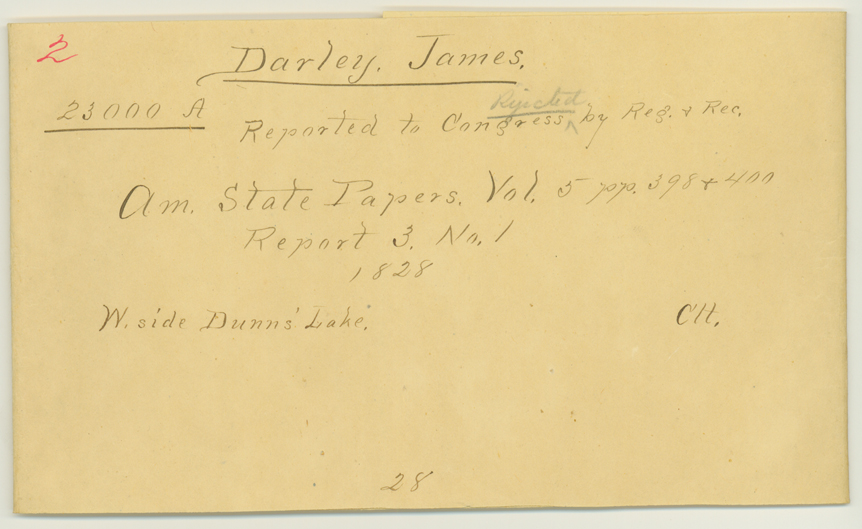 2
Darley, James.
23000 A
Rejected
Reported to Congress ^ by Reg. & Rec.
Am. State Papers. Vol. 5 pp. 398 + 400
Report 3. No. 1
1828
W. side Dunns' Lake.
Clt.
28